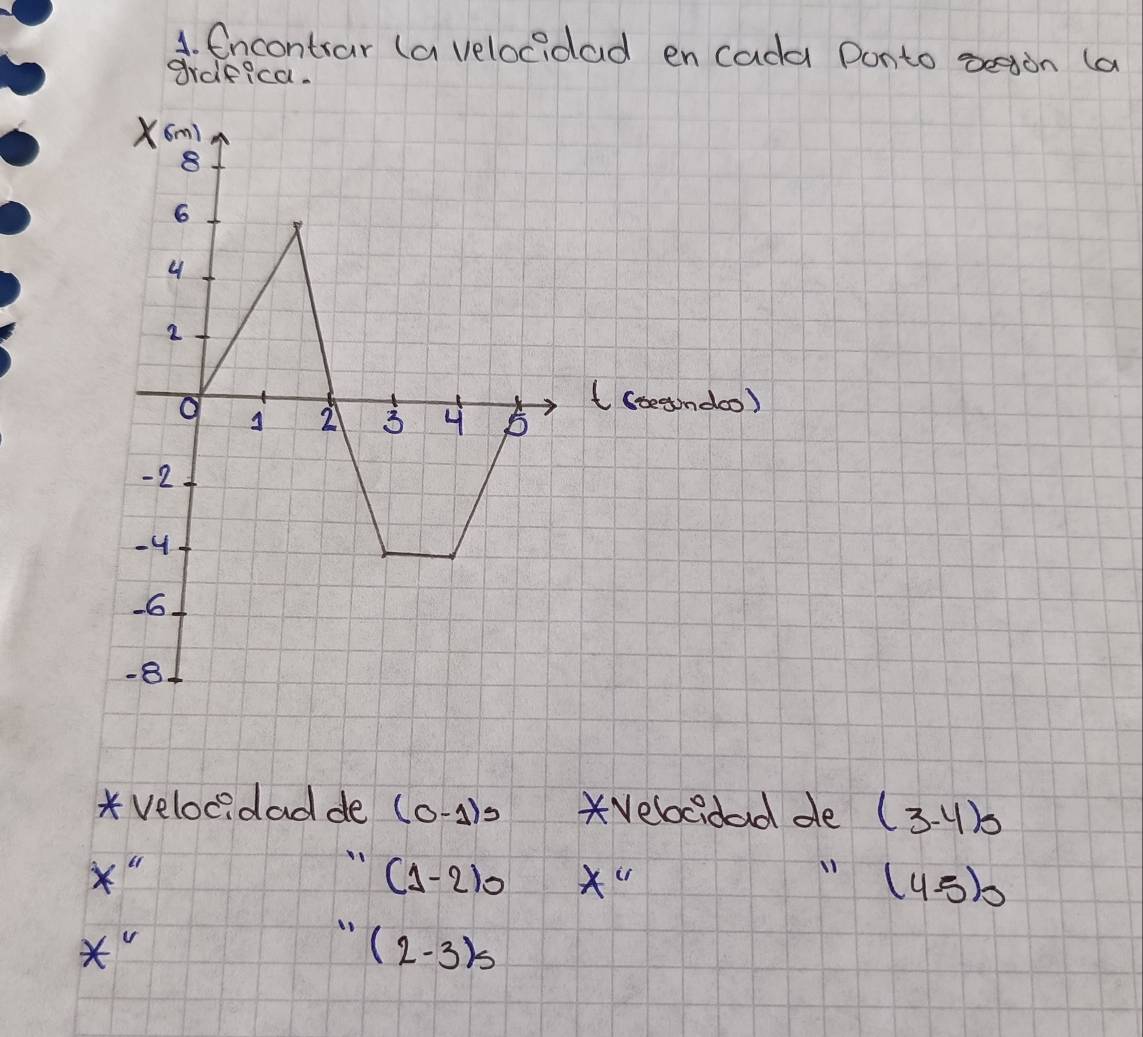 1. Encontrar la velocidad en cada Punto según la
gráfica.
X (m)
8
6
4
2
0 1 2 3 4 5 t (segundos)
-2
-4
-6
-8
* velocidad de (0-1)s * velocidad de (3-4)s
* " " (1-2)s * " " (4-5)s
* " " (2-3)s